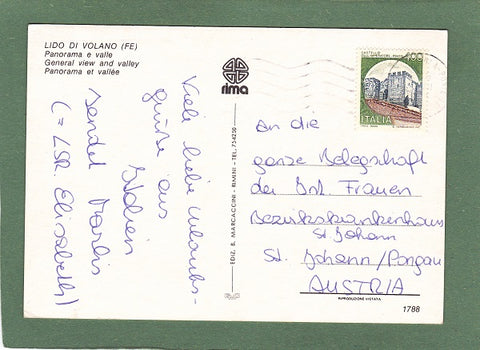 LIDO DI VOLANO (FE)
Panorama e valle
General view and valley
Panorama et vallée
rima
Viele liebe Urlaubs-
grüße aus
Italien
sendet
(= LSR. Elisabeth)
EDIZ. B. MARCACCINI - RIMINI - TEL. 734250
400
ITALIA
An die
ganze Belegschaft
der Int. Frauen
Bezirkskrankenhaus
St. Johann
St. Johann/Pongau
AUSTRIA
RIPRODUZIONE VIETATA
1788